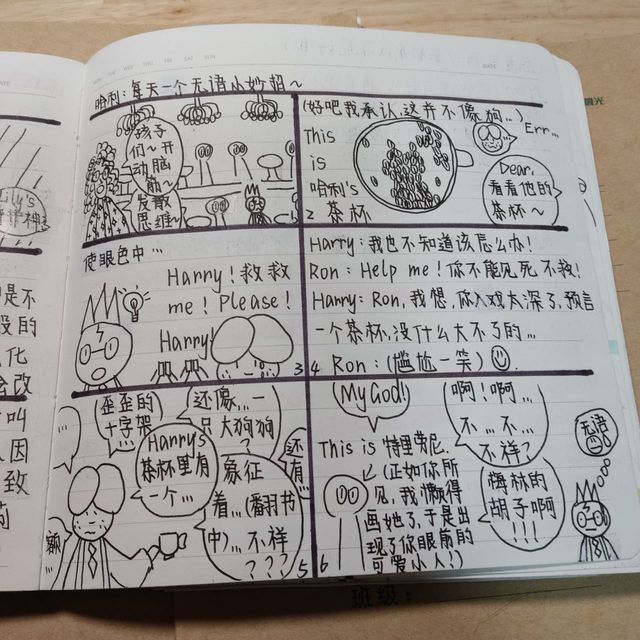 Lily's
是不
般的
化
改
叫
因
致
哈利:每天一个无语小妙招~
孩子
们~开
动脑
筋~
发散
思维~
1
(好吧我承认,这并不像狗...)
This
is
哈利's
茶杯
Err...
Dear,
看看他的
茶杯~
2
使眼色中...
Harry!救救
me! Please!
Harry!
3
Harry:我也不知道该怎么办!
Ron:Help me!你不能见死不救!
Harry:Ron,我想,你入戏太深了,预言
一个茶杯,没什么大不了的...
Ron:(尴尬一笑)
4
歪歪的
十字架
还像...一
只大狗狗?
Harry's
茶杯里有
一个...
还有
象征
着...(翻书
中)...不祥
???
额
5
My God!
啊!啊...
不...不...
不祥?
无语
This is 特里劳尼.
(正如你所
见,我懒得
画她了,于是出
现了你眼前的
可爱小人!)
梅林的
胡子啊
!!!
6
班级: